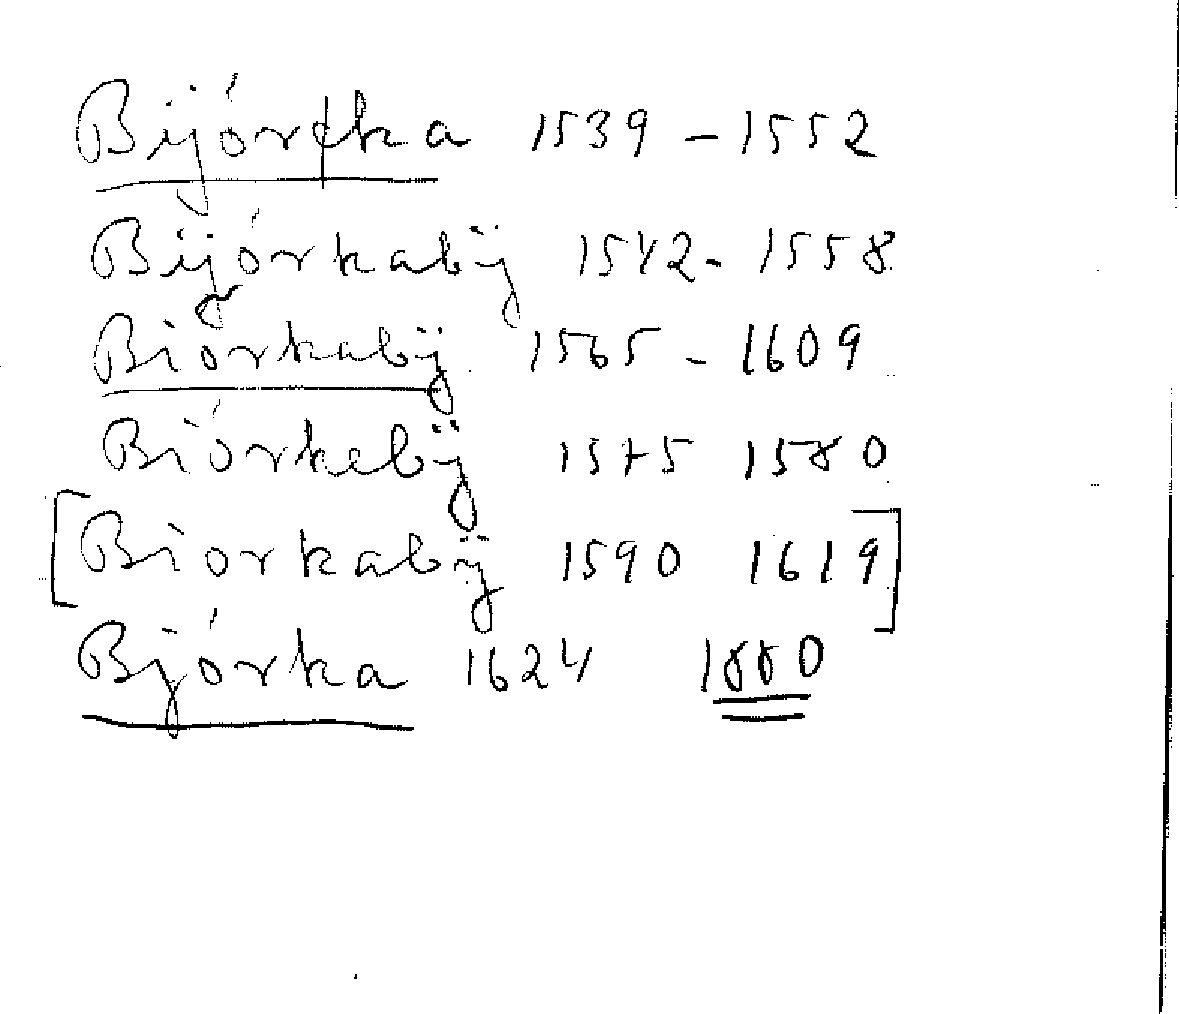 Bijórka 1539 – 1552
Bijórkabÿ 1542 - 1558
Biórkabÿ 1565 - 1609
Biórkebÿ 1575 1580
[Biorkabÿ 1590 1619]
Bjórka 1624 1880